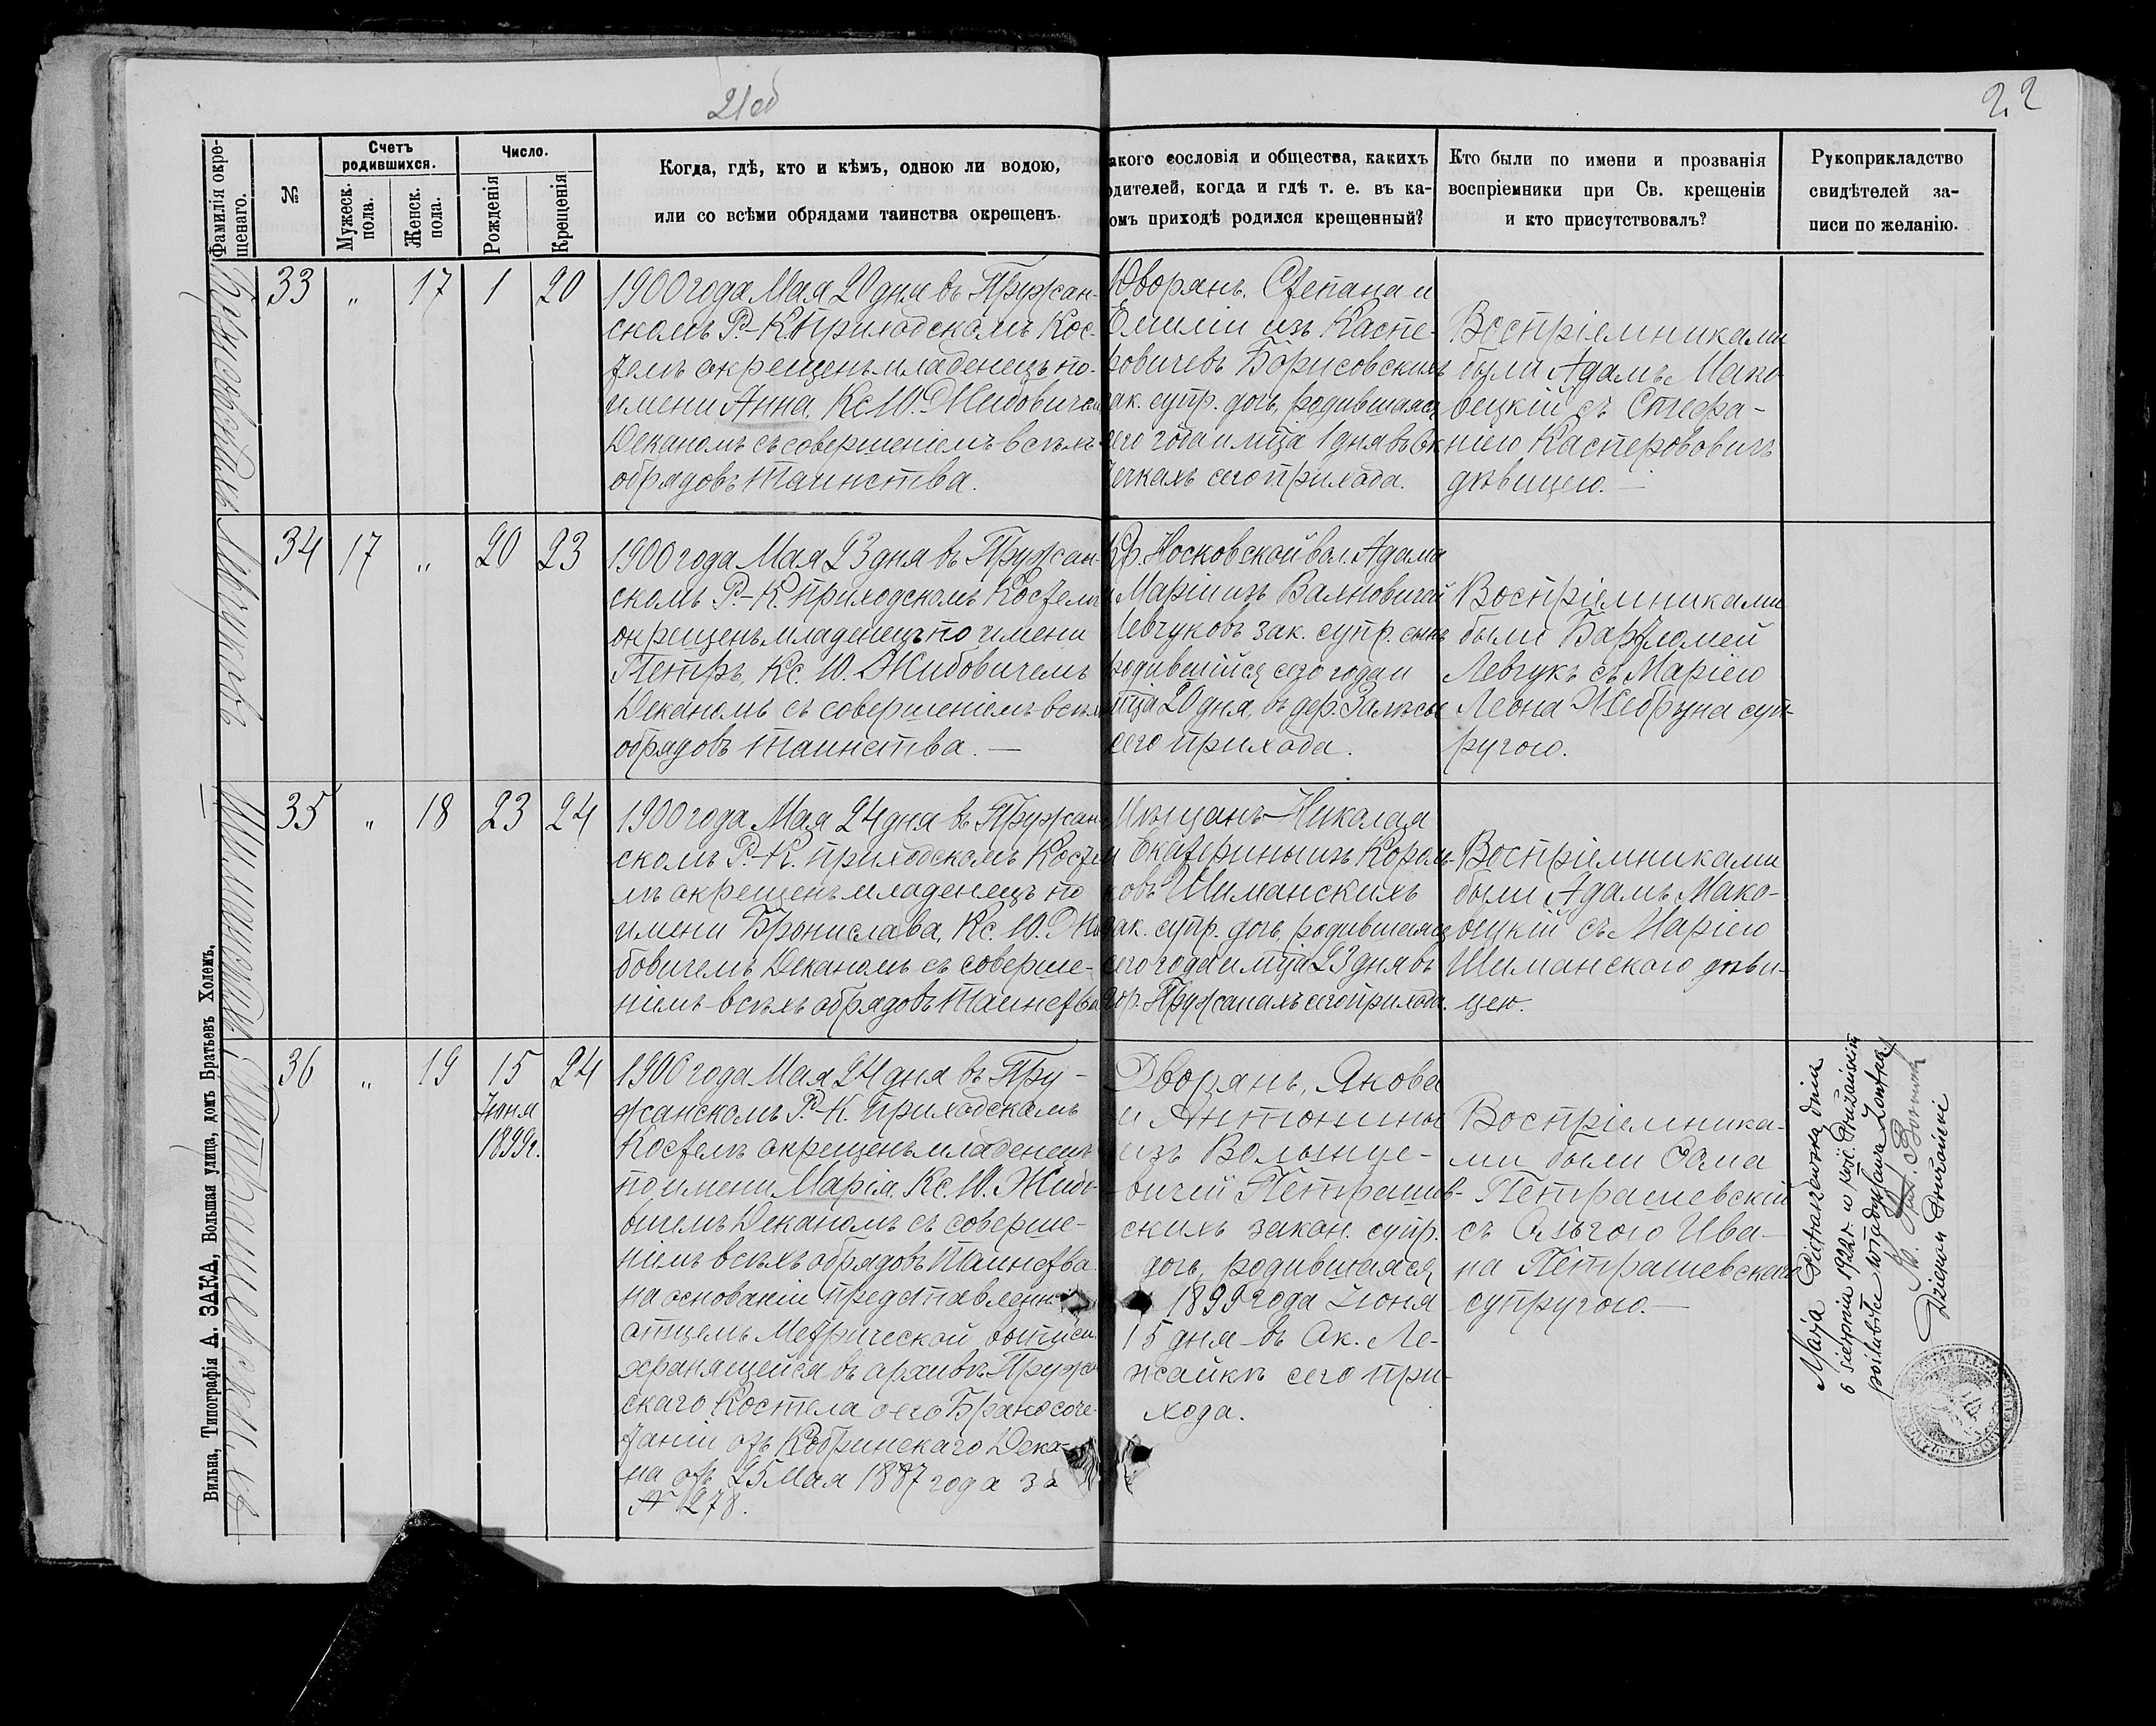 21об
22
Фамилія окре-
щенаго.
№
Счетъ
родившихся.
Мужеск.
пола.
Женск.
пола.
Число.
Рожденія
Крещенія
Когда, гдѣ, кто и кѣмъ, одною ли водою,
или со всѣми обрядами таинства окрещенъ.
акого сословія и общества, какихъ
одителей, когда и гдѣ т. е. въ ка-
омъ приходѣ родился крещенный?
Кто были по имени и прозванія
воспріемники при Св. крещеніи
и кто присутствовалъ?
Рукоприкладство
свидѣтелей за-
писи по желанію.
Борисовскихъ
33 „ 17 1 20
1900 года Мая 20 дня въ Пружан-
скомъ Р.-К. Приходскомъ Кос-
телѣ окрещенъ младенецъ по
имени Анна, Кс. Ю. Жибовичем
Деканомъ съ совершеніемъ всѣхъ
обрядовъ Таинства.
Дворянъ. Степана и
Емиліи изъ Каспе-
ровичевъ Борисовскихъ
зак. супр. дочь, родившаяся
сего года и мца 1 дня въ Ок
сего прихода.
Воспріемниками
были Адамъ Мако-
вецкій съ Стефа-
ніею Касперовичъ
дѣвицею.—
Левчуковъ
34 17 „ 20 23
1900 года Мая 23 дня въ Пружан-
скомъ Р.-К. Приходскомъ Костелѣ
окрещенъ младенецъ по имени
Петръ, Кс. Ю. Жибовичемъ
Деканомъ съ совершеніемъ всѣхъ
обрядовъ Таинства.—
Кр. Носковской вол. Адама
и Маріи изъ Валновичей
Левчуковъ зак. супр. сынъ
родившійся сего года и
мца 20 дня, въ дер. Залѣсье
сего прихода.
Воспріемниками
были Барѳломей
Левчукъ съ Маріею
Леона Жебруна суп-
ругою.
Шиманскихъ
35 „ 18 23 24
1900 года Мая 24 дня въ Пружан-
скомъ Р.-К. Приходскомъ Косте
лѣ окрещенъ младенецъ по
имени Бронислава, Кс. Ю. Жи
бовичемъ Деканомъ съ соверше-
ніемъ всѣхъ обрядовъ Таинства
Мѣщанъ Николая
и Екатерины изъ Король-
ковъ Шиманскихъ
зак. супр. дочь, родившаяся
сего года и мца 23 дня въ
гор. Пружанахъ сего прихода.
Воспріемниками
были Адамъ Мако-
вецкій съ Маріею
Шиманскаго дѣви-
цею.
Петрашевскихъ
36 „ 19 15 24
Іюня
1899г.
1900 года Мая 24 дня въ Пру-
жанскомъ Р.-К. Приходскомъ
Костелѣ окрещенъ младенецъ
по имени Марія, Кс. Ю. Жибо-
вичемъ Деканомъ съ соверше-
ніемъ всѣхъ обрядовъ Таинства
на основаніи представленн
отцемъ Метрической выписи
хранящейся въ архивѣ Пружа
скаго Костела о его Бракосоче-
таніи отъ Кобринскаго Дека-
на отъ 25 Мая 1887 года за
№ 278.
Дворянъ, Якова
и Антонины
изъ
Петрашев-
скихъ закон. супр.
дочь, родившаяся
1899 года Іюня
15 дня въ Ок. Ле-
жайкѣ сего при-
хода.
Воспріемника-
ми были Ѳома
Петрашевскій
съ Ольгою Ива-
на Петрашевскаго
супругою.—
Marja Pietraszewska dnia
6 sierpnia 1922 r. w kość. Prużańskim
poślubiła Władysława
Dziekan Prużański
Вильна, Типографія А. ЗАКА, Большая улица, домъ Братьевъ Холемъ.